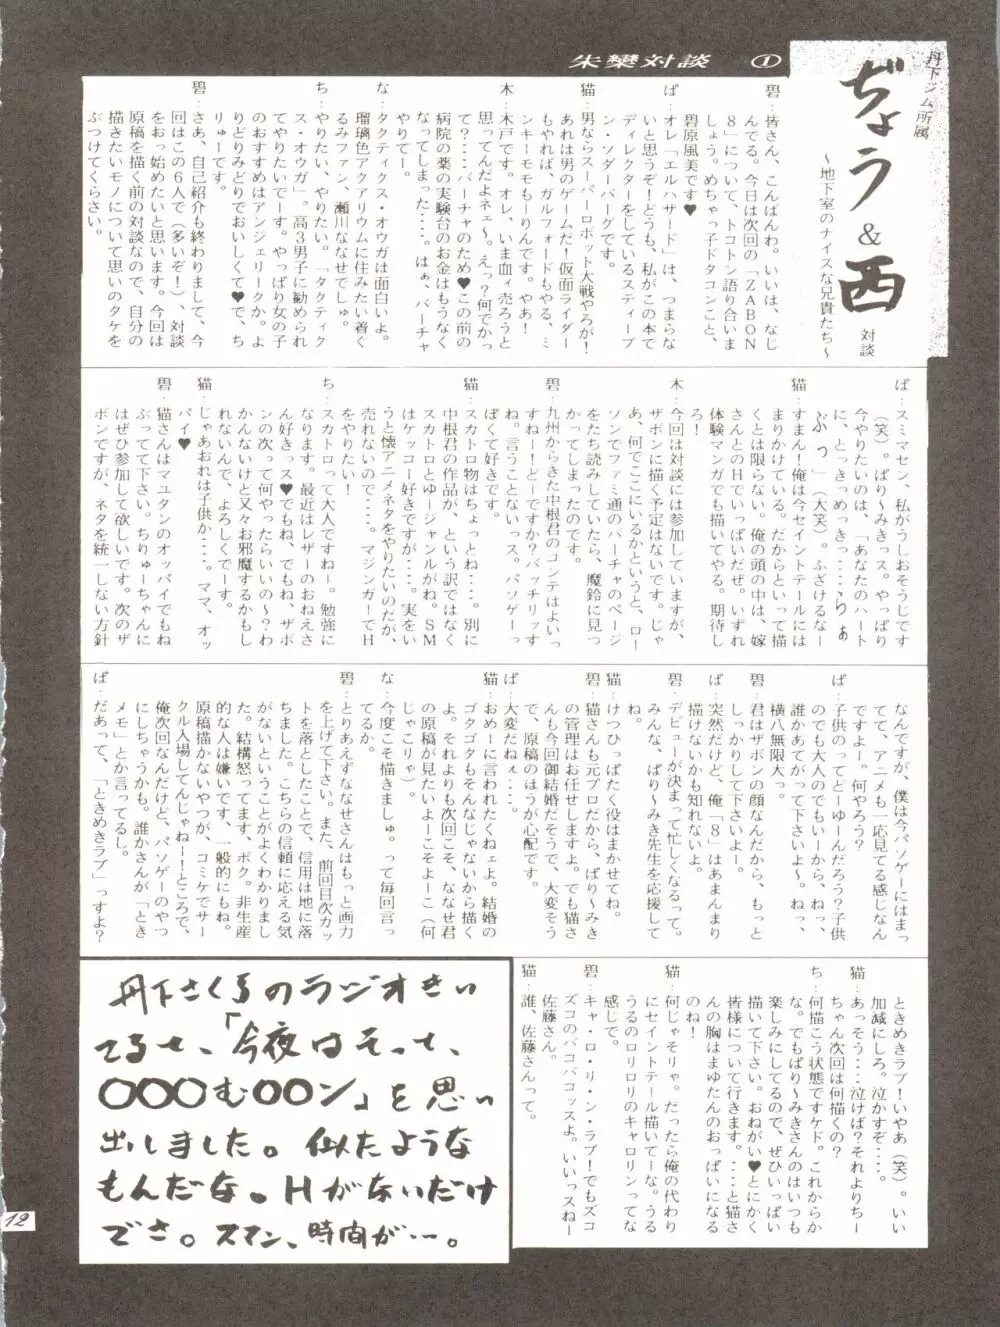 朱欒対談 ①
丹下ジム所属
ぢょう&西
対談
～地下室のナイスな兄貴たち～
碧:皆さん、こんばんわ。いいは、なじ
んでる。今日は次回の「ZABON
8」について、トコトン語り合いま
しょう。めちゃっ子ドタコンこと、
碧原風美です♥
ぱ:オレ「エルハザード」は、つまらな
いと思うぞ!どうも、私がこの本で
ディレクターをしているスティーブ
ン・ソダーバーグです。
猫:男ならスーパーロボット大戦やろが!
あれは男のゲームだ!仮面ライダー
もやれば、ガルフォードもやる、ミ
ンキーモモもーりんです。やあ!
木:木戸です。オレ、いま血ィ売ろうと
思ってんだよネェ〜。えっ?何でかっ
て?‥‥バーチャのため♥この前の
病院の薬の実験台のお金はもうなく
なってしまった‥‥。はぁ、バーチャ
やりてー。
な:タクティクス・オウガは面白いよ。
瑠璃色アクアリウムに住みたい着ぐ
るみファン、瀬川ななせでしゅ。
ち:やりたい、やりたい。「タクティク
ス・オウガ」。高3男子に勧められ
てやりたいでーす。やっぱり女の子
のおすすめはアンジェリークか。よ
りどりみどりでおいしくて♥で、ち
りゅーです。
碧:さあ、自己紹介も終わりまして、今
回はこの6人で(多いぞ!)、対談
をおっ始めたいと思います。今回は
原稿を描く前の対談なので、自分の
描きたいモノについて思いのタケを
ぶつけてくらさい。
ぱ:スミマセン、私がうしおそうじです
(笑)。ぱり〜みきっス。やっぱり
今やりたいのは、「あなたのハート
に、とっきっめっきっ‥‥らぁ
ぶっ」(大笑)。ふざけるなー
猫:すまん!俺は今セイントテールには
まりかけている。だからといって描
くとは限らない。俺の頭の中は、嫁
さんとのHでいっぱいだぜ。いずれ
体験マンガでも描いてやる。期待し
ろ!
木:今回は対談には参加していますが、
ザボンに描く予定はないです。じゃ
あ、何でここにいるかというと、ロー
ソンでファミ通のバーチャのページ
をたち読みしていたら、魔鈴に見っ
かってしまったのです。
碧:九州からきた中根君のコンテはよいっ
すねー!どーですか?バッチリっす
ね。言うことないっス。パソゲーっ
ぽくて好きです。
猫:スカトロ物はちょっとね‥‥。別に
中根君の作品が、という訳ではなく
スカトロとゆージャンルがね。SM
はケッコー好きですが‥‥。実をい
うと懐アニメネタをやりたいのだが、
売れないので‥‥。マジンガーでH
をやりたい!
ち:スカトロって大人ですねー。勉強に
なります。最近はレザーのおねえさ
ん好きっス♥でもね、でもね、ザボ
ンの次って何やったらいいの〜?わ
かんないけど又々お邪魔するかもし
れないんで、よろしくでーす。
猫:じゃあおれは子供か‥‥。ママ、オッ
パイ♥
碧:猫さんはマユタンのオッパイでもね
ぶってて下さい。ちりゅーちゃんに
はぜひ参加して欲しいです。次のザ
ボンですが、ネタを統一しない方針
なんですが、僕は今パソゲーにはまっ
てて、アニメも一応見てる感じなん
ですよ。何やろう?
ぱ:子供のってどーゆーんだろう?子供
のでも大人のでもいーから、ねっ、
誰かあてがって下さいよ〜。ねっ、
横八無限大。
碧:君はザボンの顔なんだから、もっと
しっかりして下さいよー。
ぱ:突然だけど、俺「8」はあまんまり
描けないかも知れない。
碧:デビューが決まって忙しくなるって。
みんな、ぱり〜みき先生を応援して
ね。
猫:けつひっぱたく役はまかせてね。
碧:猫さんも元プロだから、ぱり〜みき
の管理はお任せしますよ。でも猫さ
んも今回御結婚だそうで、大変そう
で、原稿のほうが心配です。
ぱ:大変だねぇ‥‥。
猫:おめーに言われたくねェよ。結婚の
ゴタゴタもそんなじゃないから描く
よ。それよりも次回こそ、ななせ君
の原稿が見たいよーこそよーこ(何
じゃこりゃ)。
な:今度こそ描きましゅ。って毎回言っ
てるか。
碧:とりあえずななせさんはもっと画力
を上げて下さい。また、前回目次カッ
トを落としたことで、信用は地に落
ちました。こちらの信頼に応える気
がないということがよくわかりまし
た。結構怒ってます、ボク。非生産
的な人は嫌いです、一般的にもね。
原稿描かないやつが、コミケでサー
クル入場してんじゃねー!ところで、
俺次回なんだけど、パソゲーのやつ
にしちゃうかも。誰かさんが「とき
メモ」とか言ってるし。
ぱ:だあって、「ときめきラブ」っすよ?
ときめきラブ!いやあ(笑)。いい
加減にしろ。泣かすぞ‥‥。
猫:あっそう‥‥泣けば?それよりちー
ちゃん次回は何描くの?
ち:何描こう状態ですケド。これからか
な。でもぱり〜みきさんのはいつも
楽しみにしてるので、ぜひいっぱい
描いて下さい。おねがい♥とにかく
皆様について行きます。‥‥と猫さ
んの胸はまゆたんのおっぱいになる
のね!
猫:何じゃそりゃ。だったら俺の代わり
にセイントテール描いてーな。うる
うるのロリロリのキャロリンってな
感じで。
碧:キャ・ロ・リ・ン・ラブ!でもズコ
ズコのバコバコッスよ。いいっスねー
佐藤さん。
猫:誰、佐藤さんって。
丹下さくらのラジオきい
てると、「今夜はそっと、
〇〇〇む〇〇ン」を思い
出しました。似たような
もんだな。Hがないだけ
でさ。スマン、時間が‥‥。
12